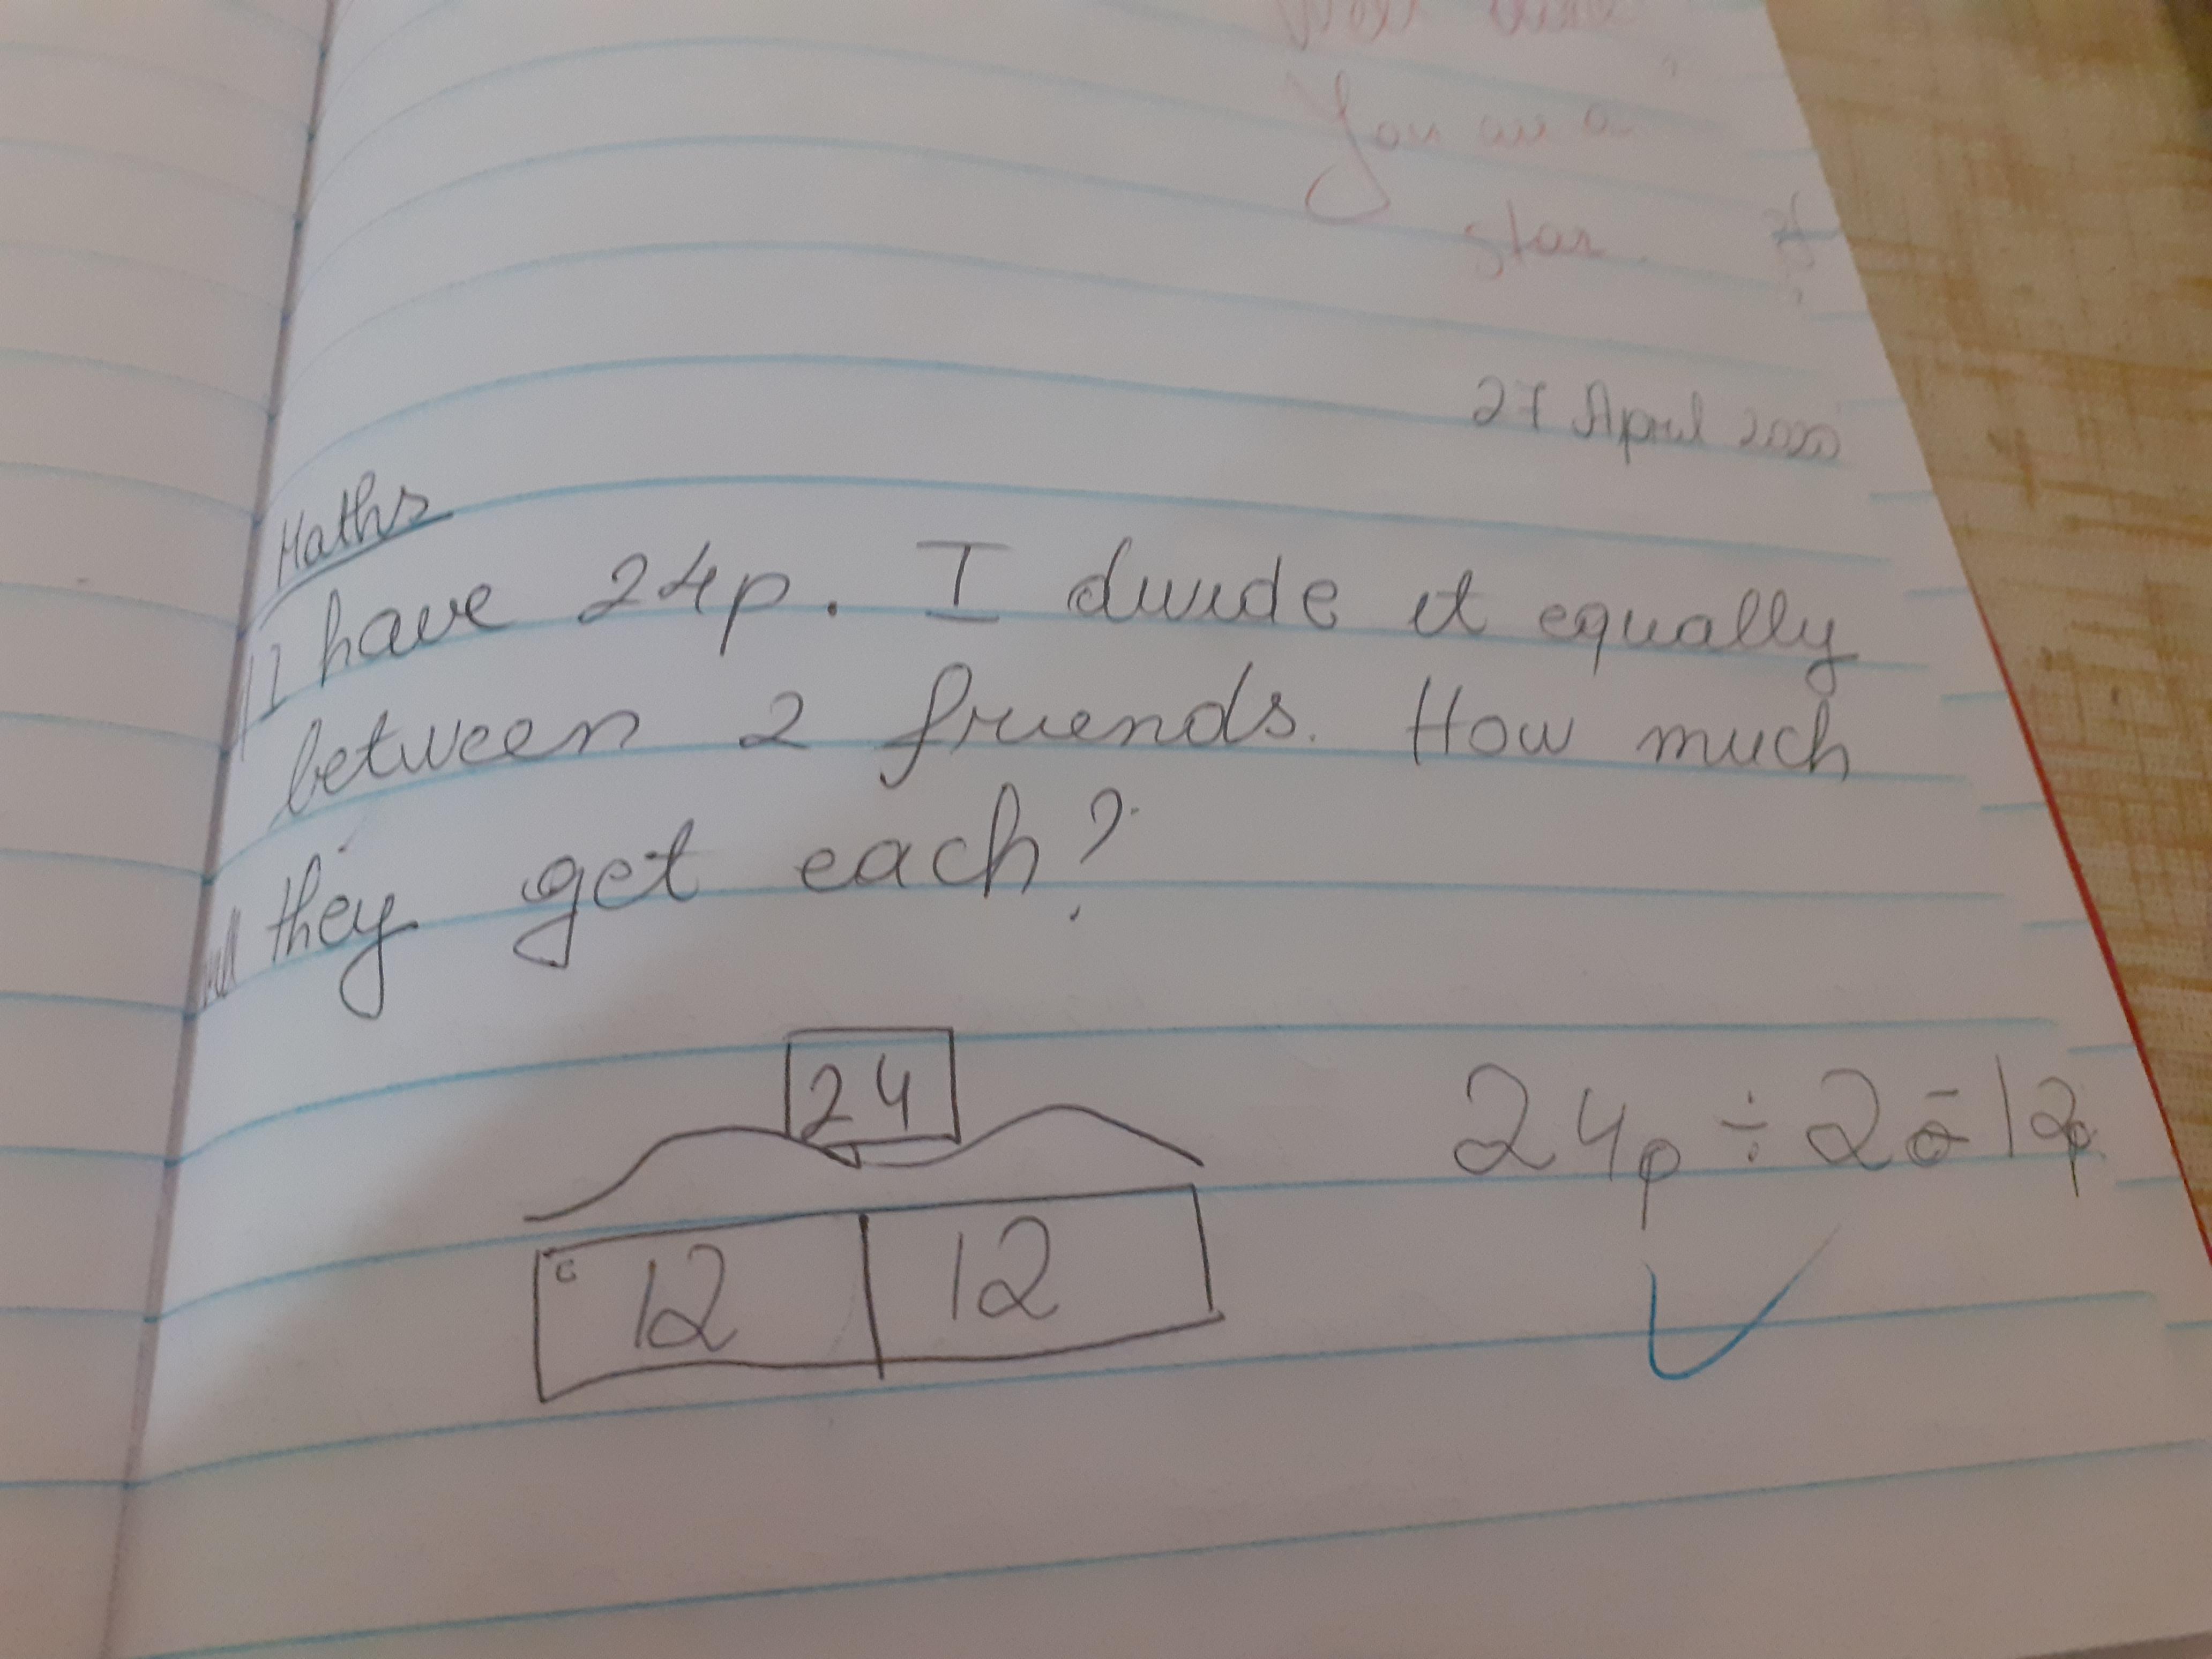 You are a
star.
27 April 2020
Maths
I have 24p. I divide it equally
between 2 friends. How much
they get each?
24
24p ÷ 2 = 12p
12 12